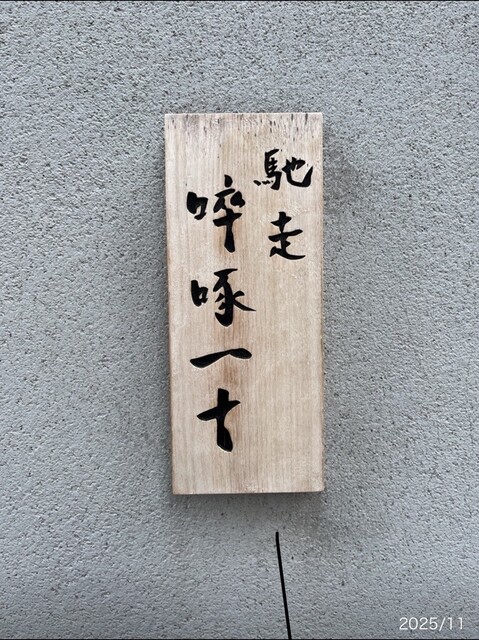 馳走
啐啄一十
2025/11